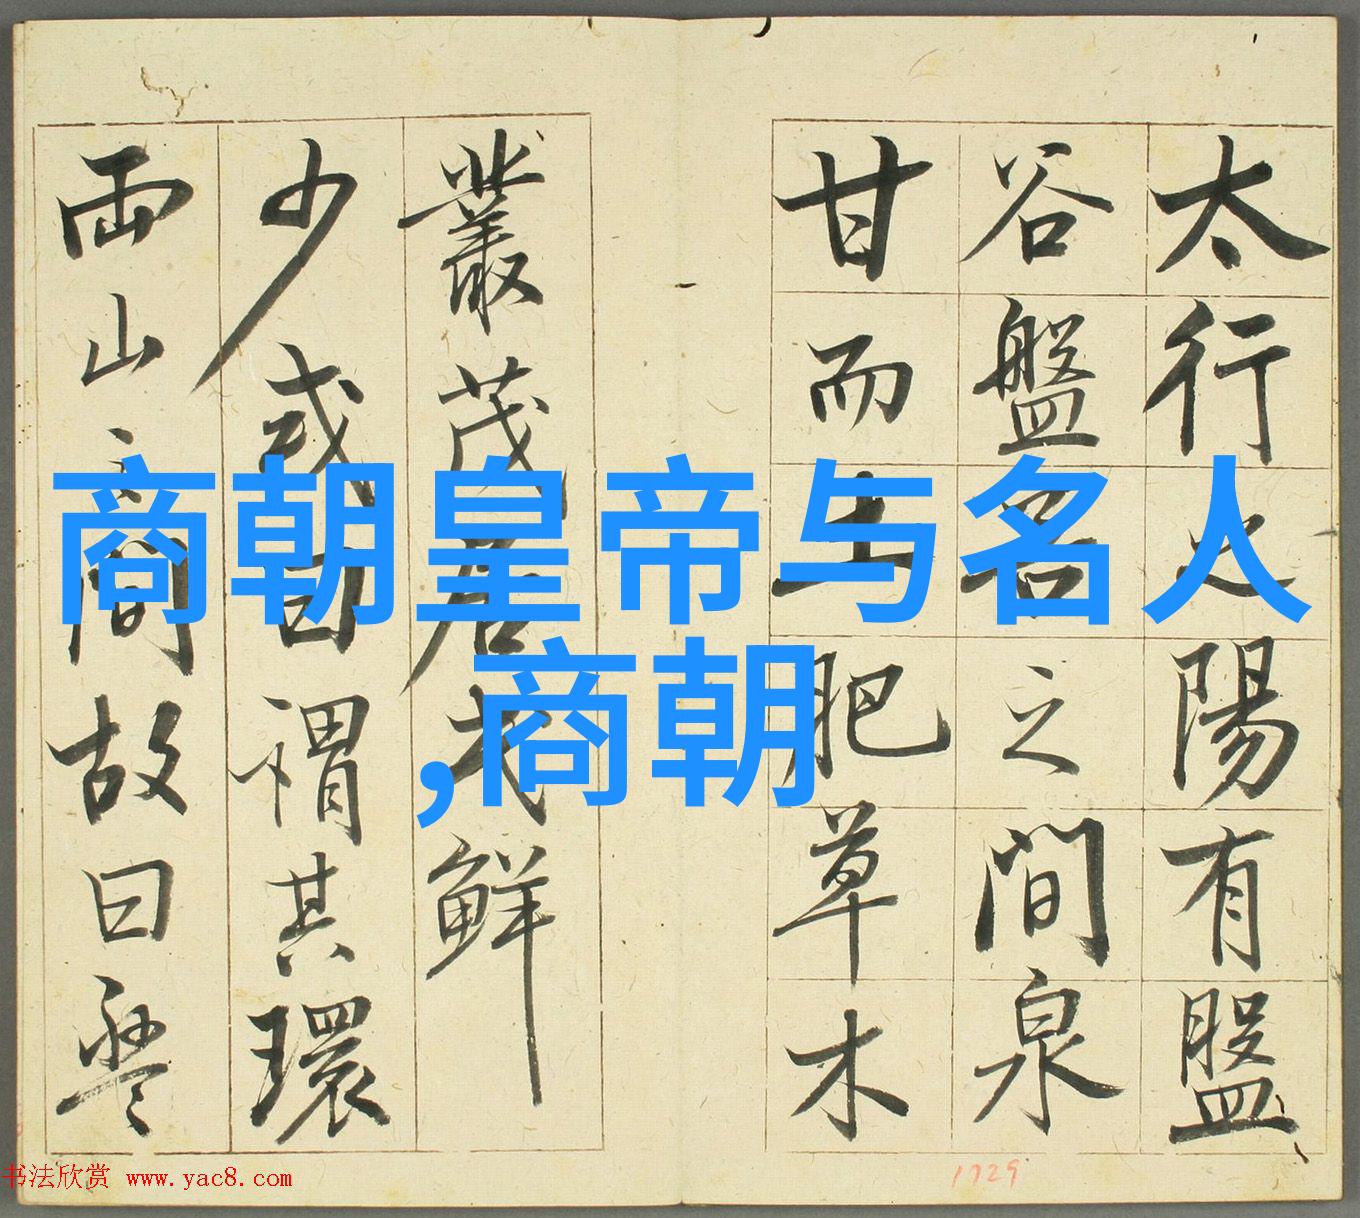 太行之陽有盤
谷盤谷之間泉
甘而土肥草木
叢茂居民鮮
少或曰謂其環
兩山之間故曰盤
商朝皇帝与名人
,商朝
书法欣赏 www.yac8.com
1729